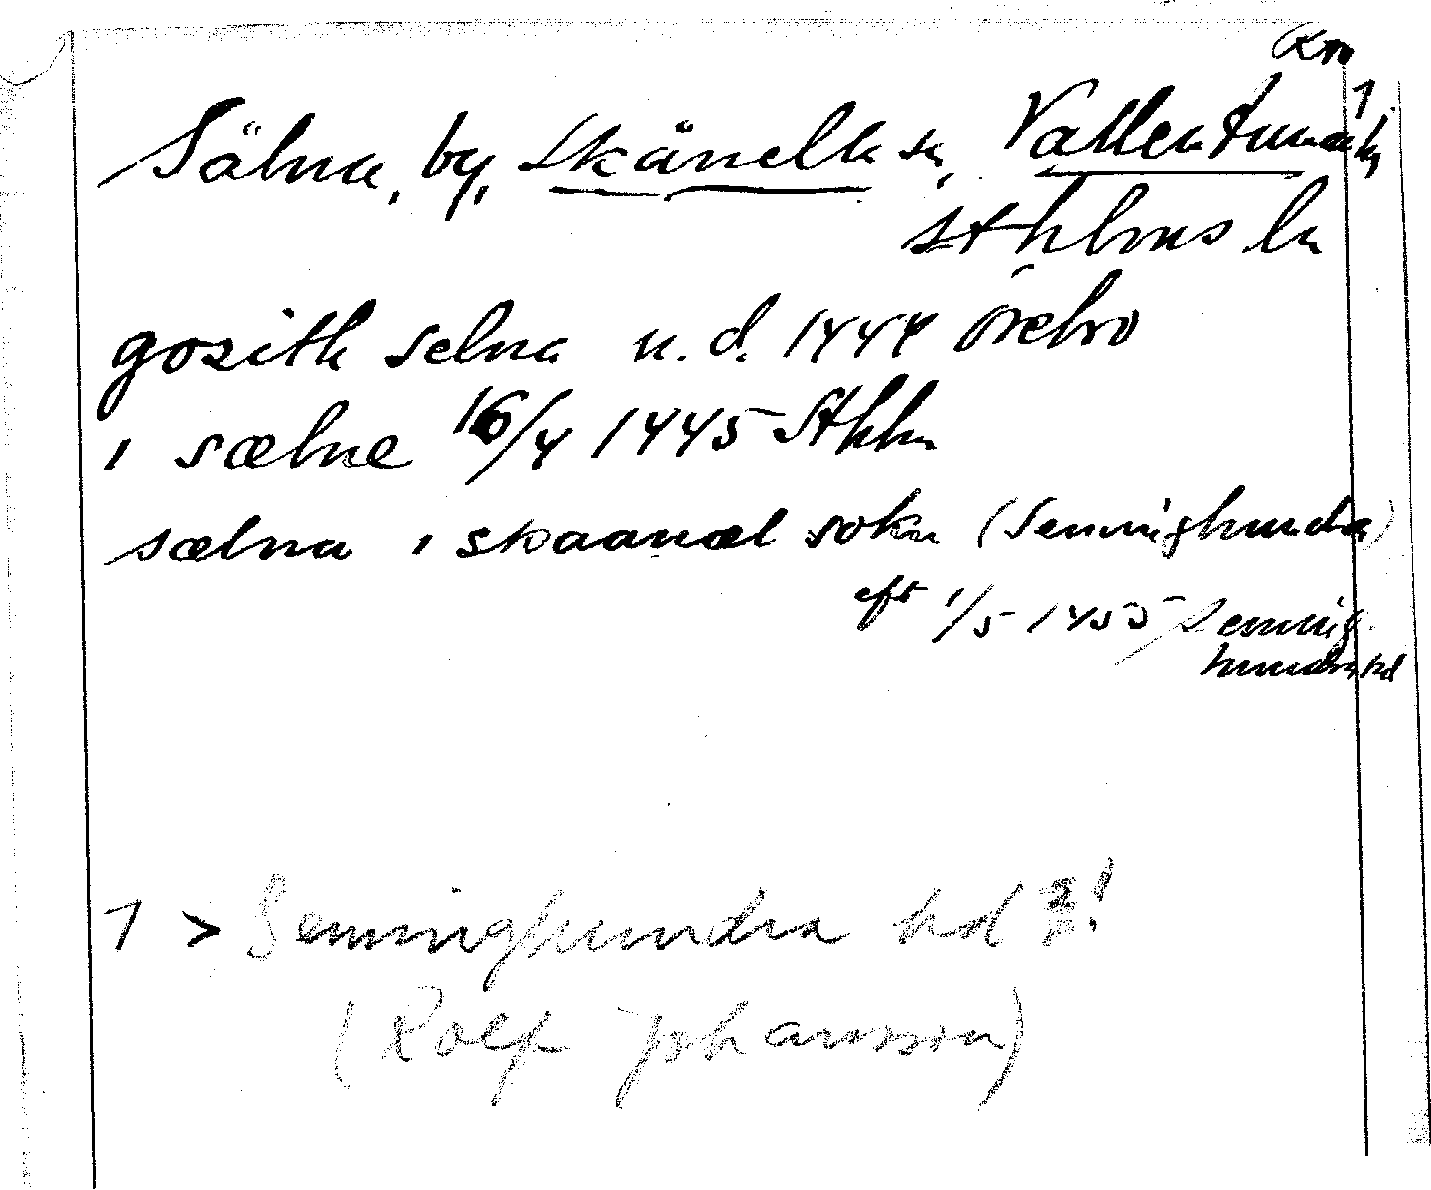 Rm
Sälna, by, Skånella sn, Vallentuna hd 1
Sthlms ln
gozith selna u.d. 1444 Örebro
i sælne 16/4 1445 Sthlm
sælna i skaanæl sokn (Seminghundra)
eft 1/5 1455 Seming
hundra hd
1 > Seminghundra hd !
(Rolf Johansson)